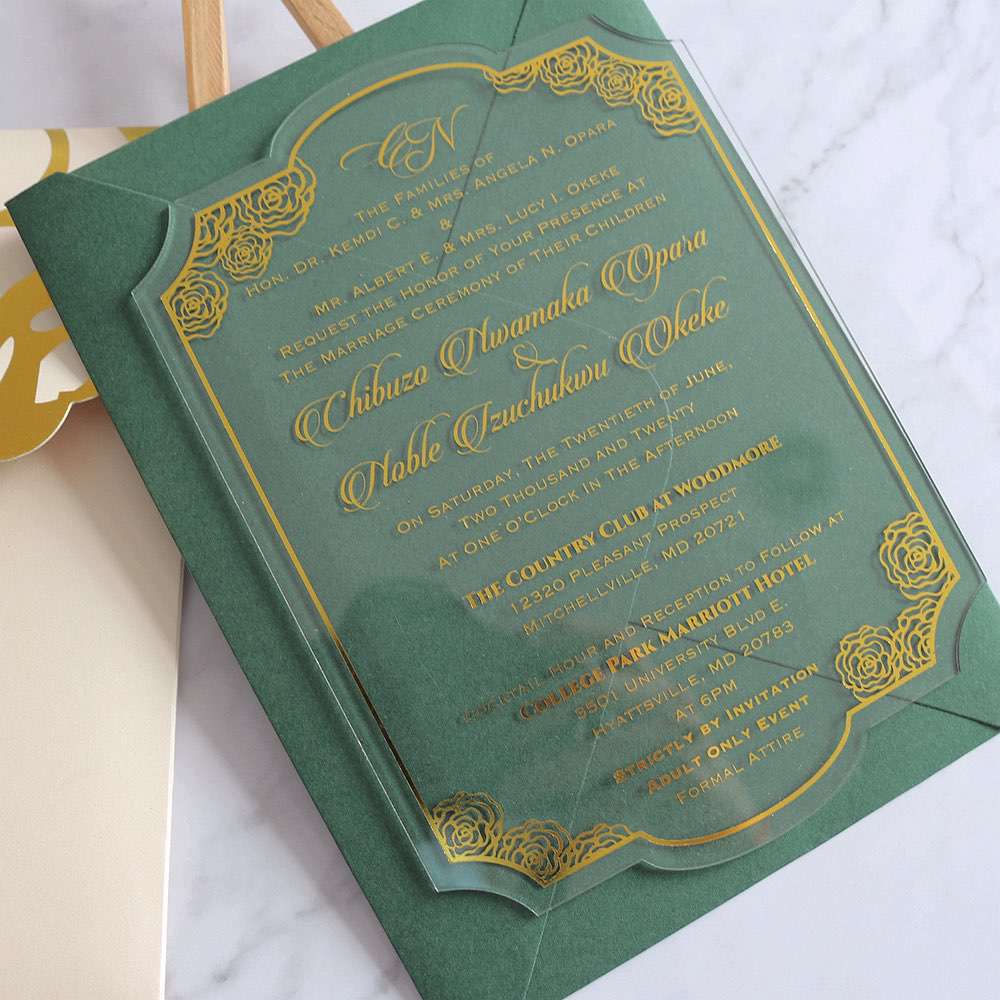 CN
The Families of
Hon. Dr. Kemdi C. & Mrs. Angela N. Opara
&
Mr. Albert E. & Mrs. Lucy I. Okeke
Request The Honor of Your Presence At
The Marriage Ceremony of Their Children
Chibuzo Nwamaka Opara
&
Noble Izuchukwu Okeke
on Saturday, The Twentieth of June,
Two Thousand and Twenty
At One O'Clock In The Afternoon
The Country Club at Woodmore
12320 Pleasant Prospect
Mitchellville, MD 20721
Cocktail Hour and Reception to Follow at
College Park Marriott Hotel
3501 University Blvd E.
Hyattsville, MD 20783
At 6PM
Strictly by Invitation
Adult Only Event
Formal Attire